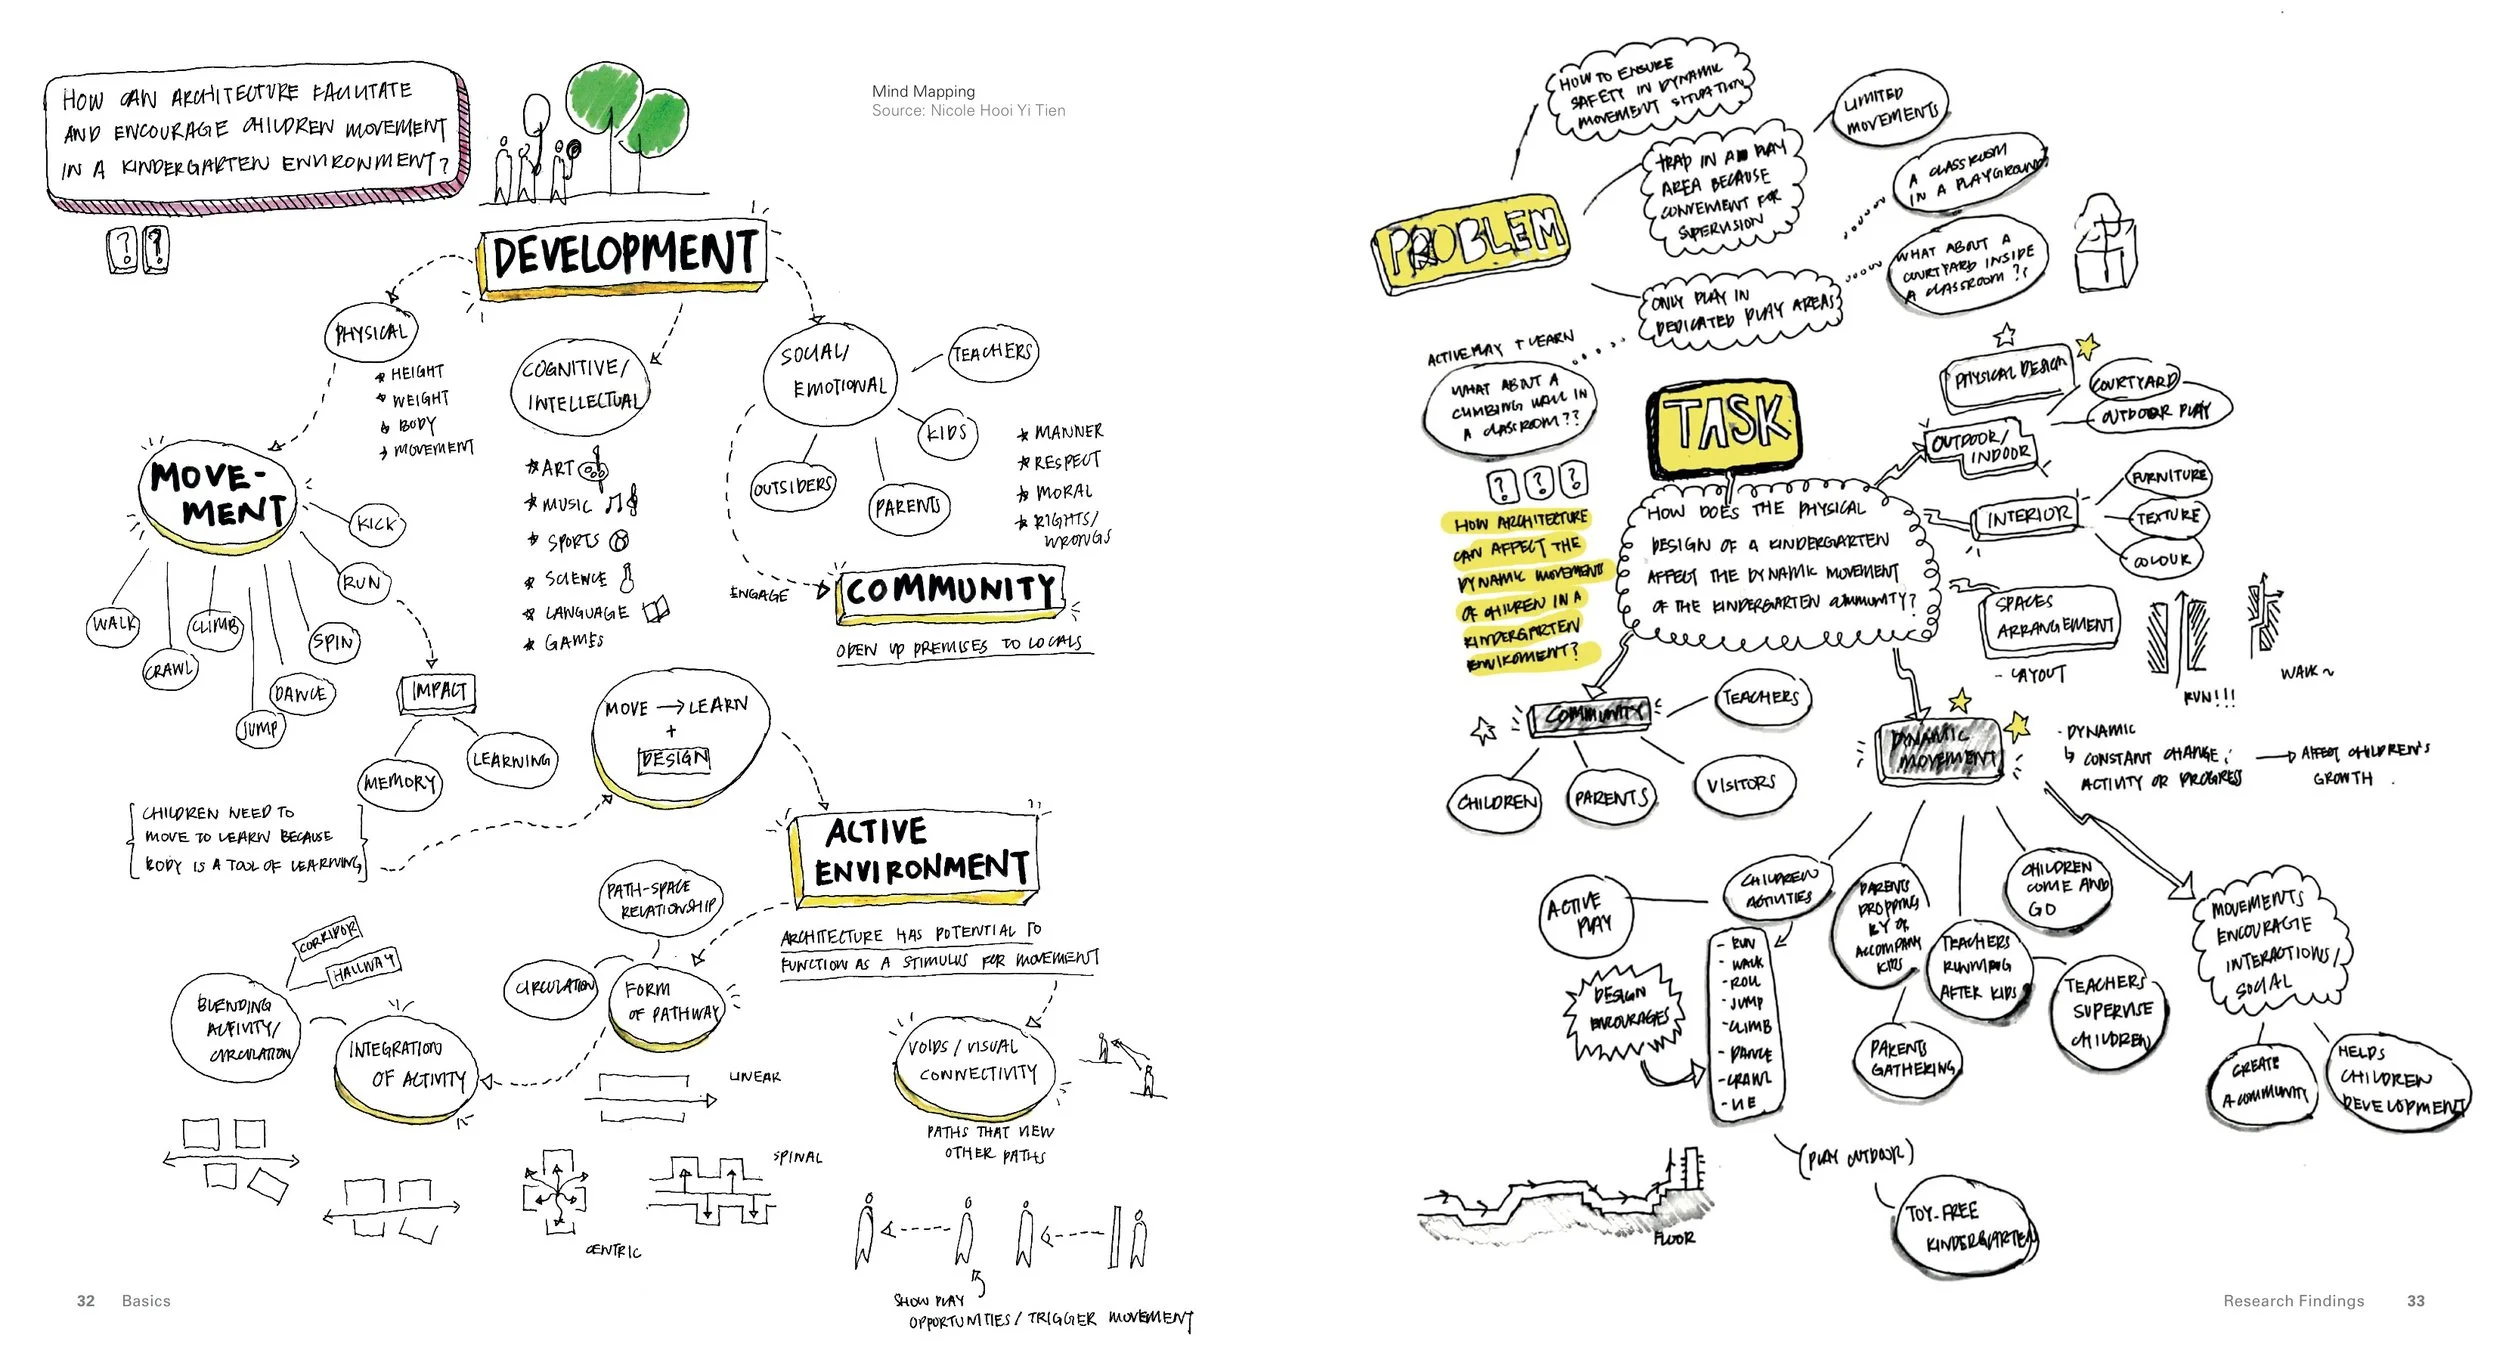 HOW CAN ARCHITECTURE FACILITATE
AND ENCOURAGE CHILDREN MOVEMENT
IN A KINDERGARTEN ENVIRONMENT?
? ?
Mind Mapping
Source: Nicole Hooi Yi Tien
DEVELOPMENT
PHYSICAL
HEIGHT
WEIGHT
BODY
MOVEMENT
COGNITIVE/
INTELLECTUAL
ART
MUSIC
SPORTS
SCIENCE
LANGUAGE
GAMES
SOCIAL/
EMOTIONAL
TEACHERS
KIDS
PARENTS
OUTSIDERS
MANNER
RESPECT
MORAL
RIGHTS/
WRONGS
ENGAGE
COMMUNITY
OPEN UP PREMISES TO LOCALS
MOVE-
MENT
KICK
RUN
SPIN
DANCE
JUMP
CLIMB
CRAWL
WALK
IMPACT
MEMORY
LEARNING
CHILDREN NEED TO
MOVE TO LEARN BECAUSE
BODY IS A TOOL OF LEARNING
MOVE → LEARN
+
DESIGN
ACTIVE
ENVIRONMENT
ARCHITECTURE HAS POTENTIAL TO
FUNCTION AS A STIMULUS FOR MOVEMENT
PATH-SPACE
RELATIONSHIP
CIRCULATION
FORM
OF PATHWAY
CORRIDOR
HALLWAY
BLENDING
ACTIVITY/
CIRCULATION
INTEGRATION
OF ACTIVITY
LINEAR
SPINAL
CENTRIC
VOIDS / VISUAL
CONNECTIVITY
PATHS THAT VIEW
OTHER PATHS
SHOW PLAY
OPPORTUNITIES / TRIGGER MOVEMENT
32 Basics
PROBLEM
HOW TO ENSURE
SAFETY IN DYNAMIC
MOVEMENT SITUATION
TRAP IN A PLAY
AREA BECAUSE
CONVEMENT FOR
SUPERVISION
LIMITED
MOVEMENTS
A CLASSROOM
IN A PLAYGROUND
WHAT ABOUT A
COURTYARD INSIDE
A CLASSROOM ??
ONLY PLAY IN
DEDICATED PLAY AREAS
ACTIVE PLAY + LEARN
WHAT ABOUT A
CLIMBING WALL IN
A CLASSROOM??
? ? ?
HOW ARCHITECTURE
CAN AFFECT THE
DYNAMIC MOVEMENT
OF CHILDREN IN A
KINDERGARTEN
ENVIROMENT?
TASK
HOW DOES THE PHYSICAL
DESIGN OF A KINDERGARTEN
AFFECT THE DYNAMIC MOVEMENT
OF THE KINDERGARTEN COMMUNITY?
PHYSICAL DESIGN
OUTDOOR/
INDOOR
COURTYARD
OUTDOOR PLAY
INTERIOR
FURNITURE
TEXTURE
COLOUR
SPACES
ARRANGEMENT
- LAYOUT
RUN!!!
WALK~
COMMUNITY
TEACHERS
VISITORS
PARENTS
CHILDREN
DYNAMIC
MOVEMENT
- DYNAMIC
CONSTANT CHANGE,
ACTIVITY OR PROGRESS
→ AFFECT CHILDREN'S
GROWTH
CHILDREN
ACTIVITIES
ACTIVE
PLAY
DESIGN
ENCOURAGES
- RUN
- WALK
- ROLL
- JUMP
- CLIMB
- DANCE
- CRAWL
- LIE
PARENTS
DROPPING
BY OR
ACCOMPANY
KIDS
PARENTS
GATHERING
TEACHERS
RUNNING
AFTER KIDS
TEACHERS
SUPERVISE
CHILDREN
CHILDREN
COME AND
GO
MOVEMENTS
ENCOURAGE
INTERACTIONS/
SOCIAL
CREATE
A COMMUNITY
HELPS
CHILDREN
DEVELOPMENT
(PLAY OUTDOOR)
TOY-FREE
KINDERGARTEN
FLOOR
Research Findings 33